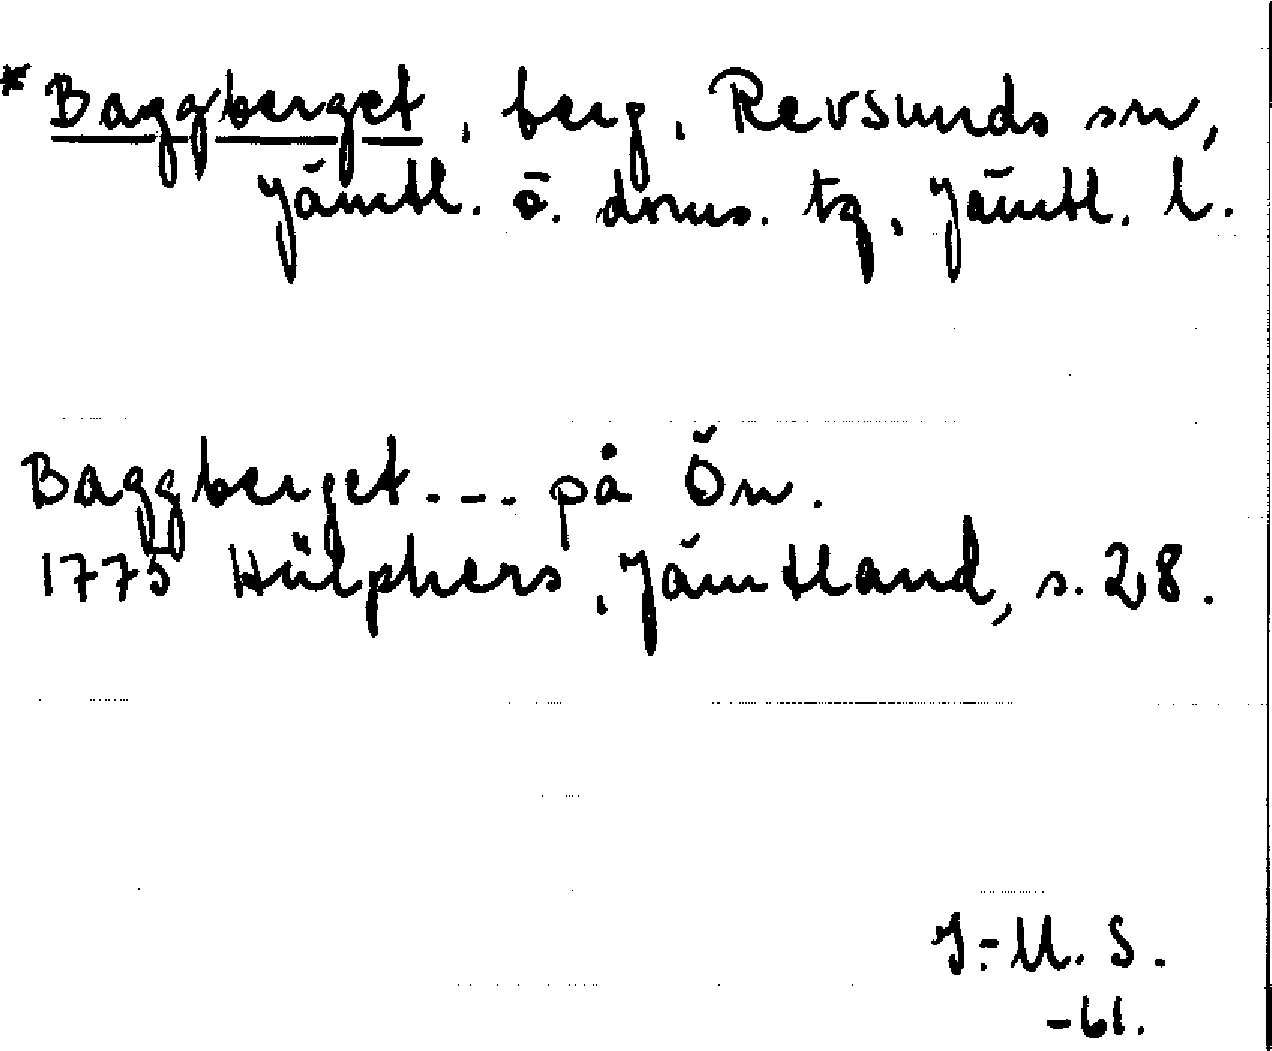 * Baggberget, berg, Revsunds sn,
Jämtl. ö. doms. tg, Jämtl. l.
Baggberget --- på Ön.
1775 Hülphers, Jämtland, s. 28.
I.-U. S.
-61.